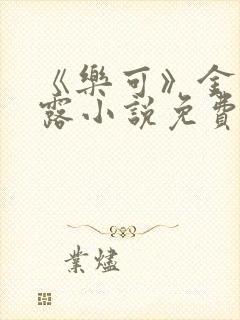 《樂可》金
露小說免費
業燼